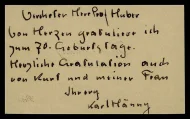 Verehrter Herr Prof Huber
Von Herzen gratuliere ich
zum 70. Geburtstage.
Herzliche Gratulation auch
von Kurt und meiner Frau
Ihr erg
Karl Hänny